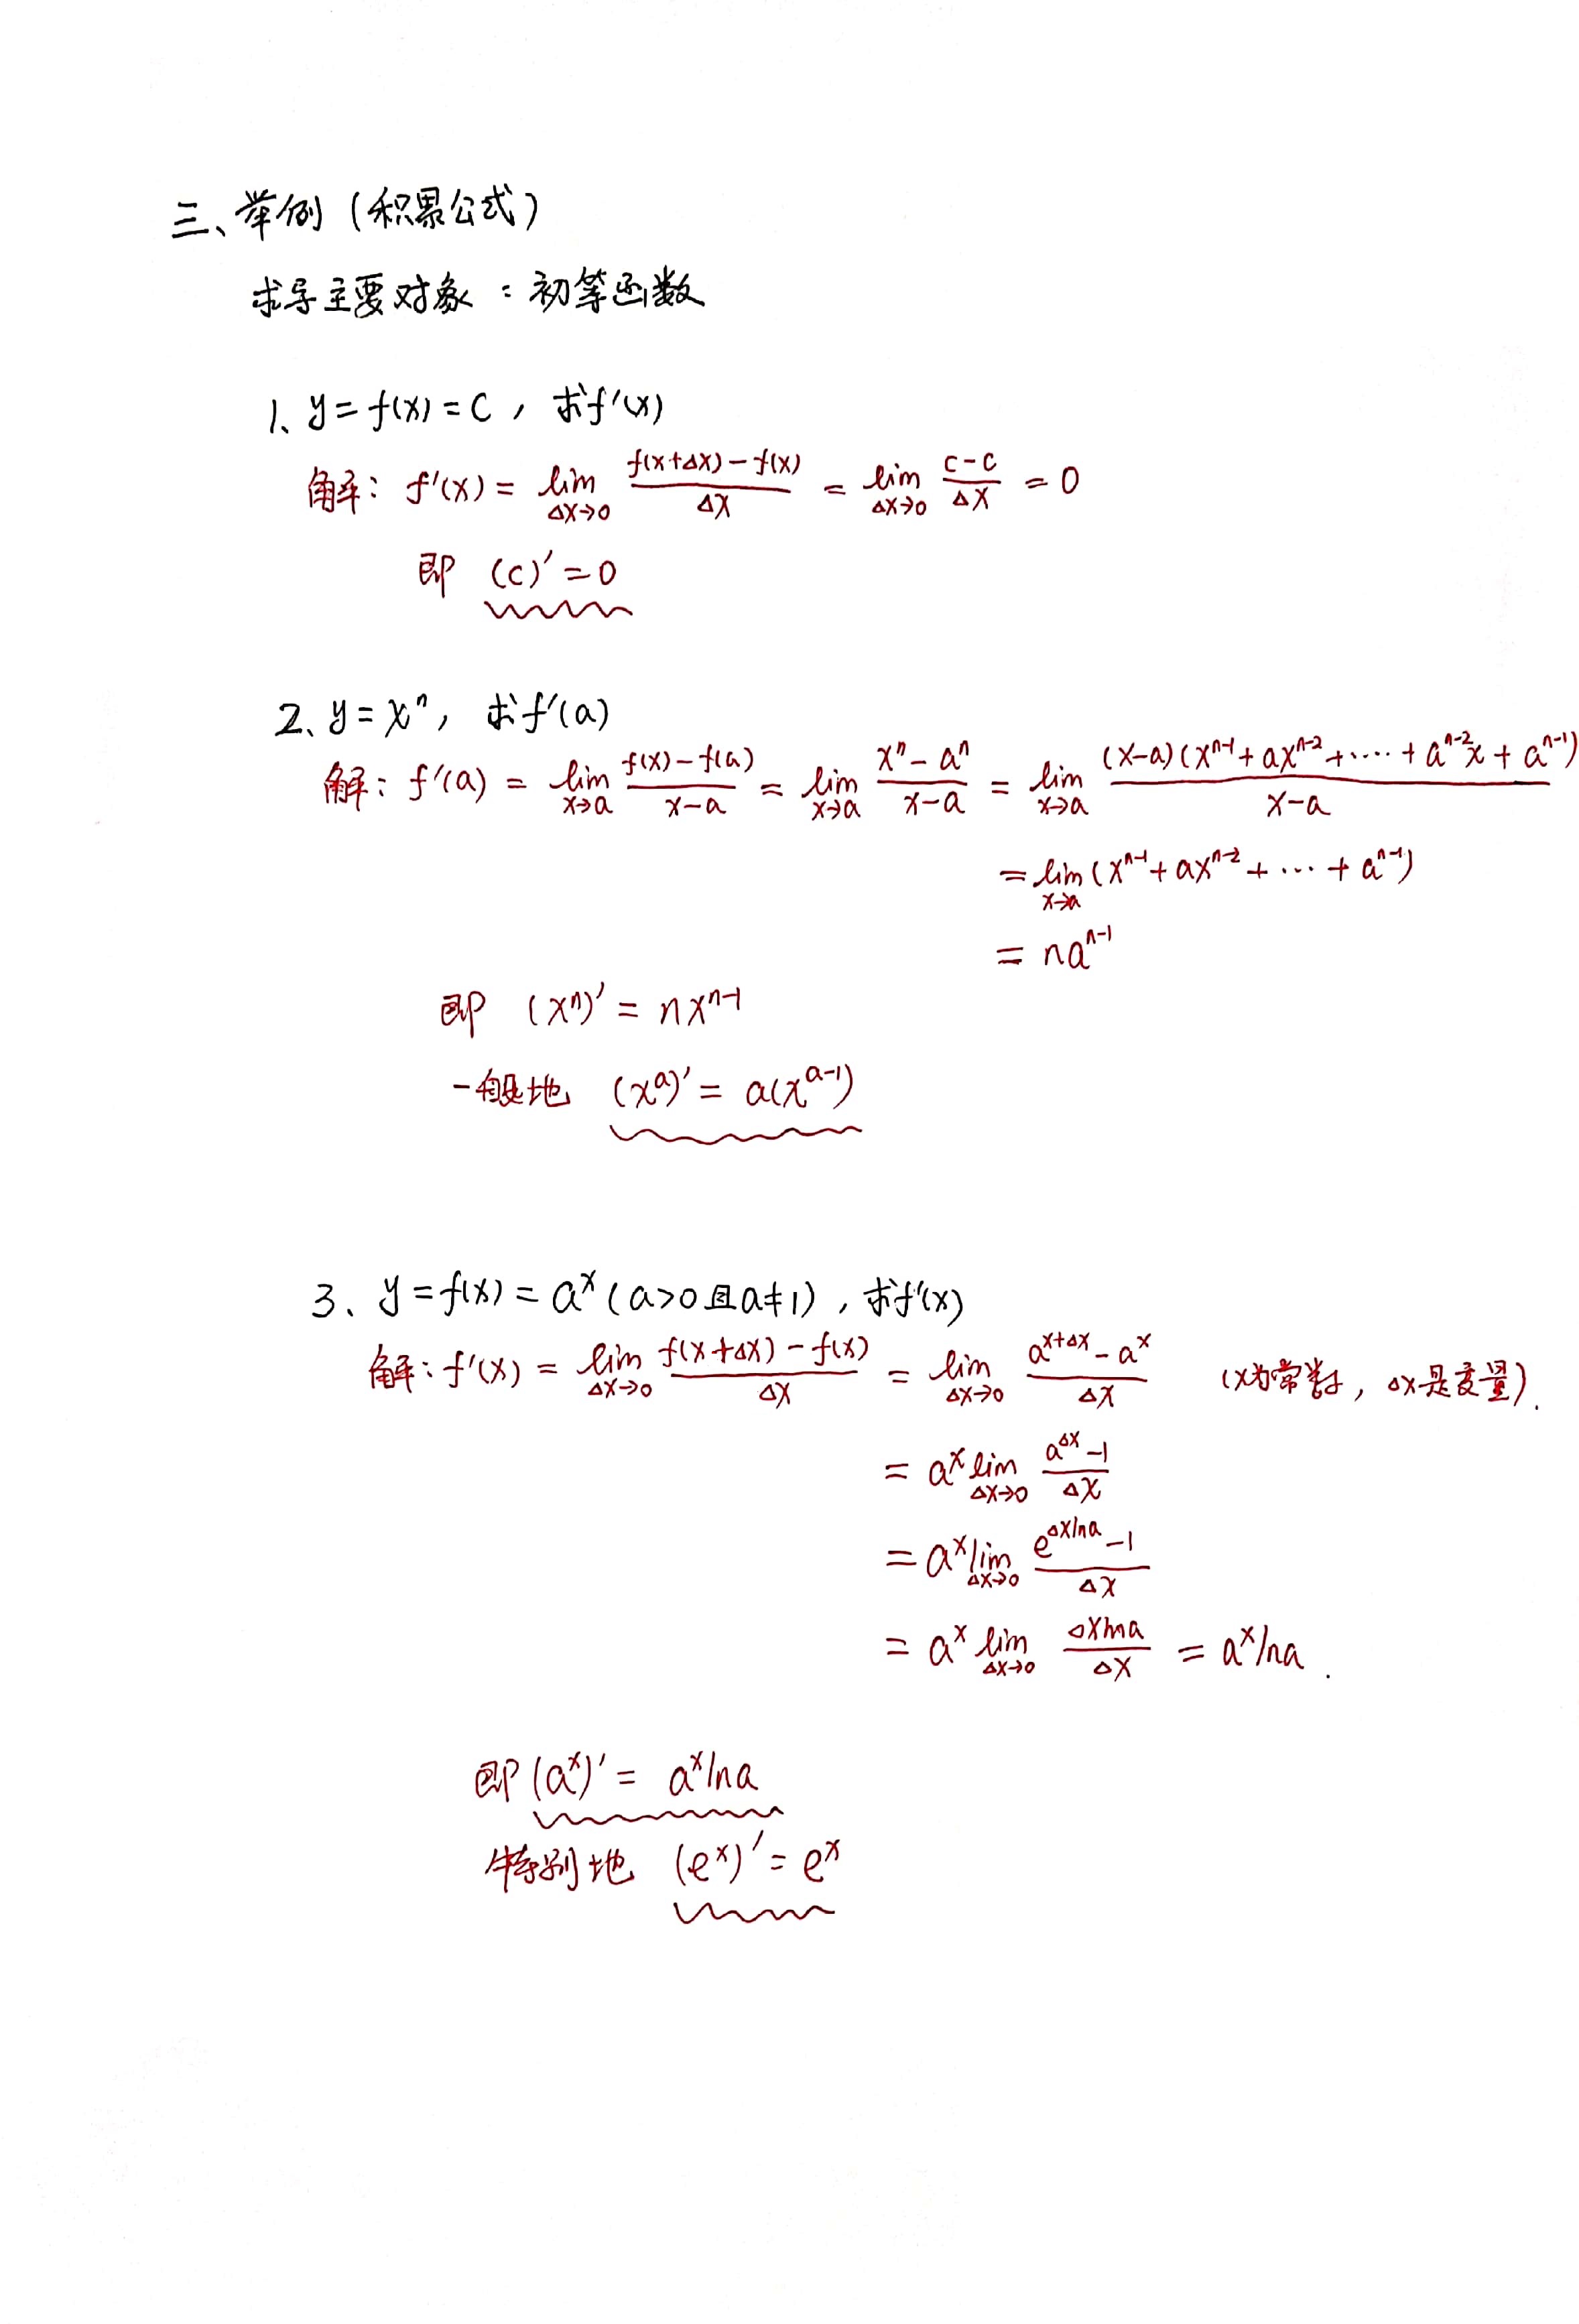 三、举例（积累公式）
求导主要对象：初等函数
1、y=f(x)=C，求f′(x)
解：f′(x) = lim_{Δx→0} \frac{f(x+Δx)-f(x)}{Δx} = lim_{Δx→0} \frac{C-C}{Δx} = 0
即 (C)′=0
2、y=xⁿ，求f′(a)
解：f′(a) = lim_{x→a} \frac{f(x)-f(a)}{x-a} = lim_{x→a} \frac{x^n-a^n}{x-a} = lim_{x→a} \frac{(x-a)(x^{n-1}+ax^{n-2}+……+a^{n-2}x+a^{n-1})}{x-a}
= lim_{x→a} (x^{n-1}+ax^{n-2}+…+a^{n-1})
= na^{n-1}
即 (x^n)′ = nx^{n-1}
一般地 (x^a)′ = a(x^{a-1})
3、y=f(x)=a^x（a>0且a≠1），求f′(x)
解：f′(x) = lim_{Δx→0} \frac{f(x+Δx)-f(x)}{Δx} = lim_{Δx→0} \frac{a^{x+Δx}-a^x}{Δx} （x为常数，Δx是变量）.
= a^x lim_{Δx→0} \frac{a^{Δx}-1}{Δx}
= a^x lim_{Δx→0} \frac{e^{Δxlna}-1}{Δx}
= a^x lim_{Δx→0} \frac{Δxlna}{Δx} = a^x lna.
即 (a^x)′ = a^x lna
特别地 (e^x)′ = e^x